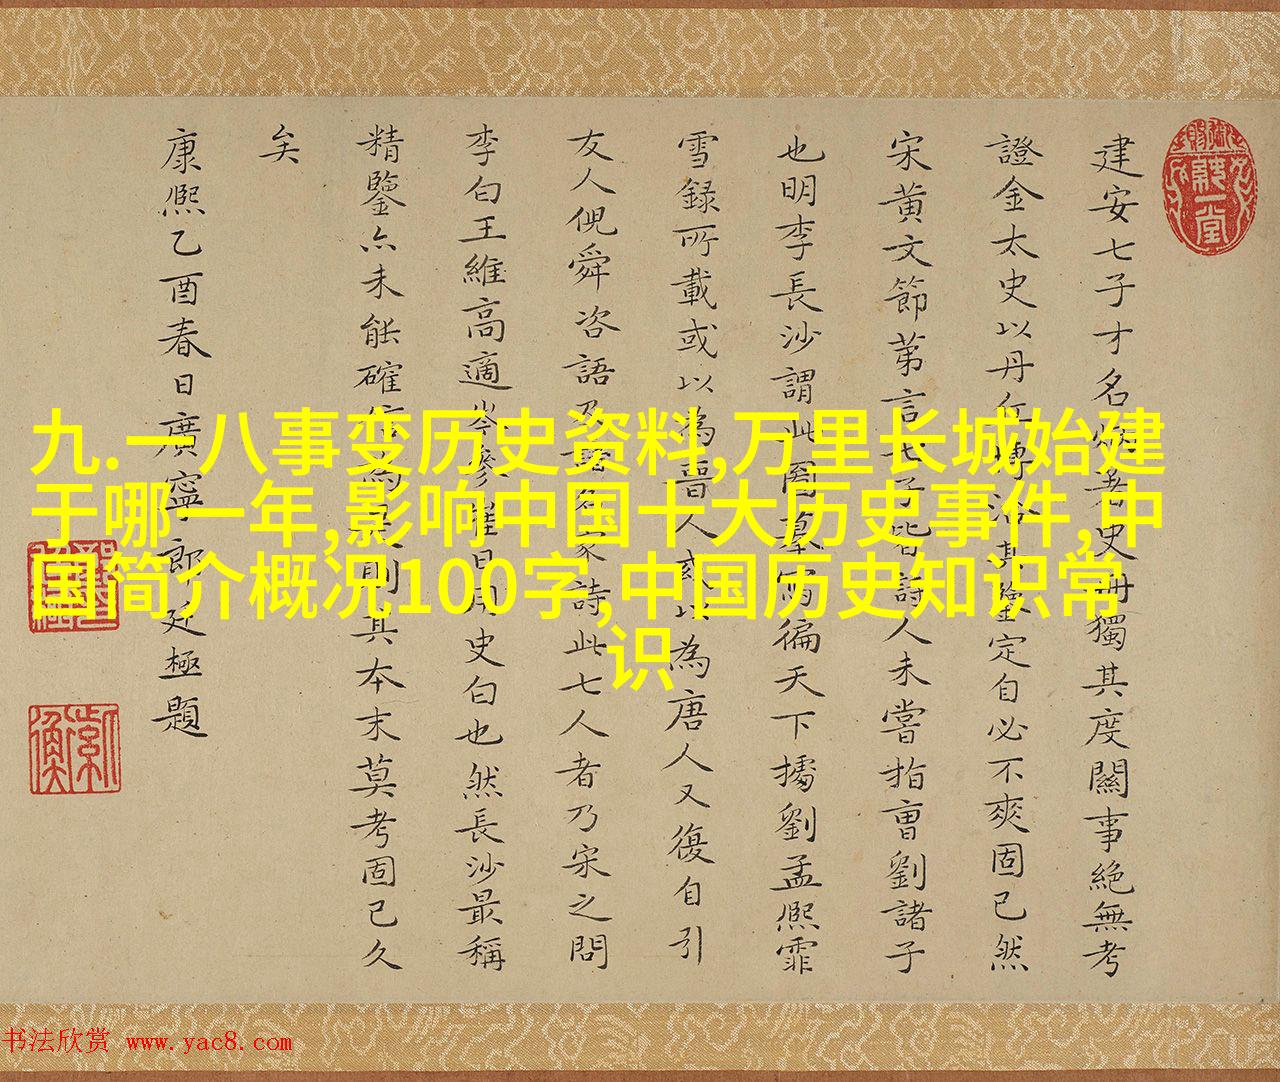 建安七子才名煥著史冊獨其度關事絕無考
證金太史以丹丘博洽其鑒定自必不爽固已然
宋黃文節第言七子皆詩人未嘗指曹劉諸子
也明李長沙謂此圖摹寫徧天下據劉孟熙霏
雪録所載或以為晉人或以為唐人又復自引
友人倪舜咨語及名家詩此七人者乃宋之問
李白王維高適岑參崔日用史白也然長沙最稱
精鑒亦未能確信為則其本末莫考固已久
矣
康熙乙酉春日廣寧郎廷極題
九.一八事变历史资料,万里长城始建
于哪一年,影响中国十大历史事件,中
国简介概况100字,中国历史知识常
识
书法欣赏 www.yac8.com